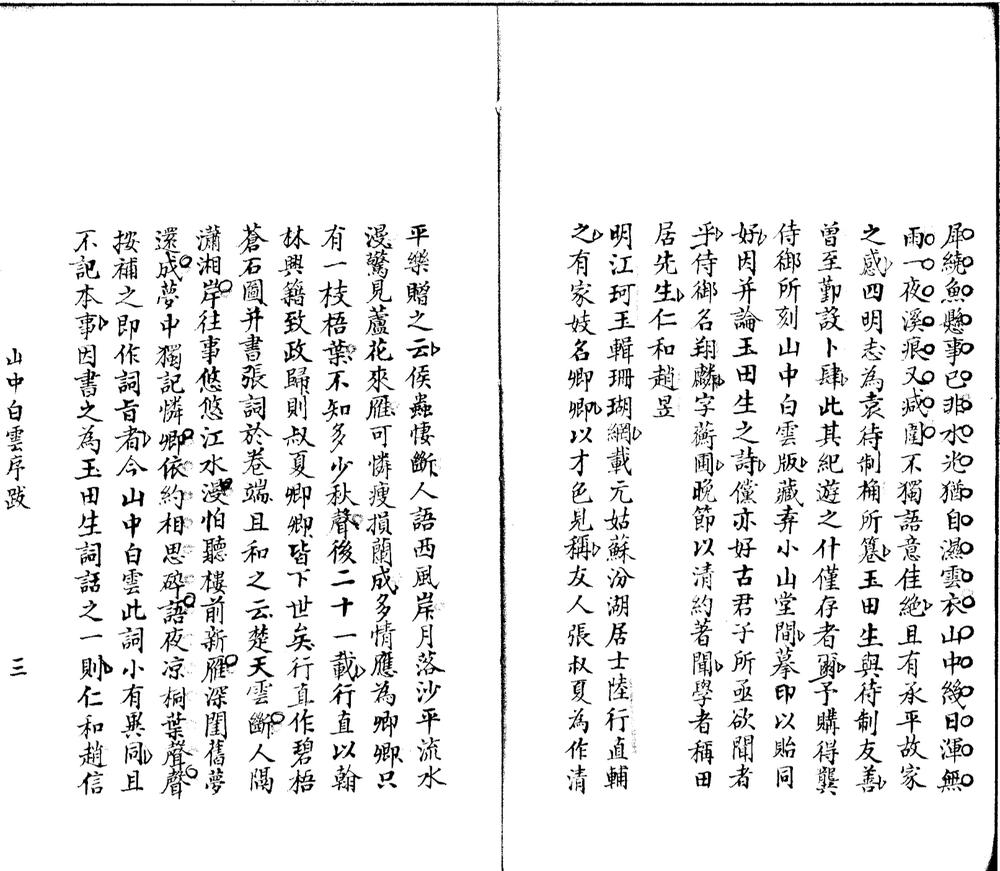 犀繞魚懸事已非水光猶自濕雲衣山中幾日渾無
雨一夜溪痕又減圍不獨語意佳絶且有承平故家
之感四明志為袁待制桷所簒玉田生與待制友善
曾至勤設卜肆此其紀遊之什僅存者爾予購得龔
侍御所刻山中白雲版藏弆小山堂間摹印以貽同
好因并論玉田生之詩儻亦好古君子所亟欲聞者
乎侍御名翔麟字蘅圃晚節以清約著聞學者稱田
居先生仁和趙昱
明江珂玉輯珊瑚網載元姑蘇汾湖居士陸行直輔
之有家妓名卿卿以才色見稱友人張叔夏為作清
平樂贈之云候蟲悽斷人語西風岸月落沙平流水
漫驚見蘆花來雁可憐瘦損蘭成多情應為卿卿只
有一枝梧葉不知多少秋聲後二十一載行直以翰
林典籍致政歸則叔夏卿卿皆下世矣行直作碧梧
蒼石圖并書張詞於卷端且和之云楚天雲斷人隔
瀟湘岸往事悠悠江水漫怕聽樓前新雁深閨舊夢
還成夢中獨記憐卿依約相思碎語夜凉桐葉聲聲
按補之即作詞旨者今山中白雲此詞小有異同且
不記本事因書之為玉田生詞話之一則仁和趙信
山中白雲序跋
三